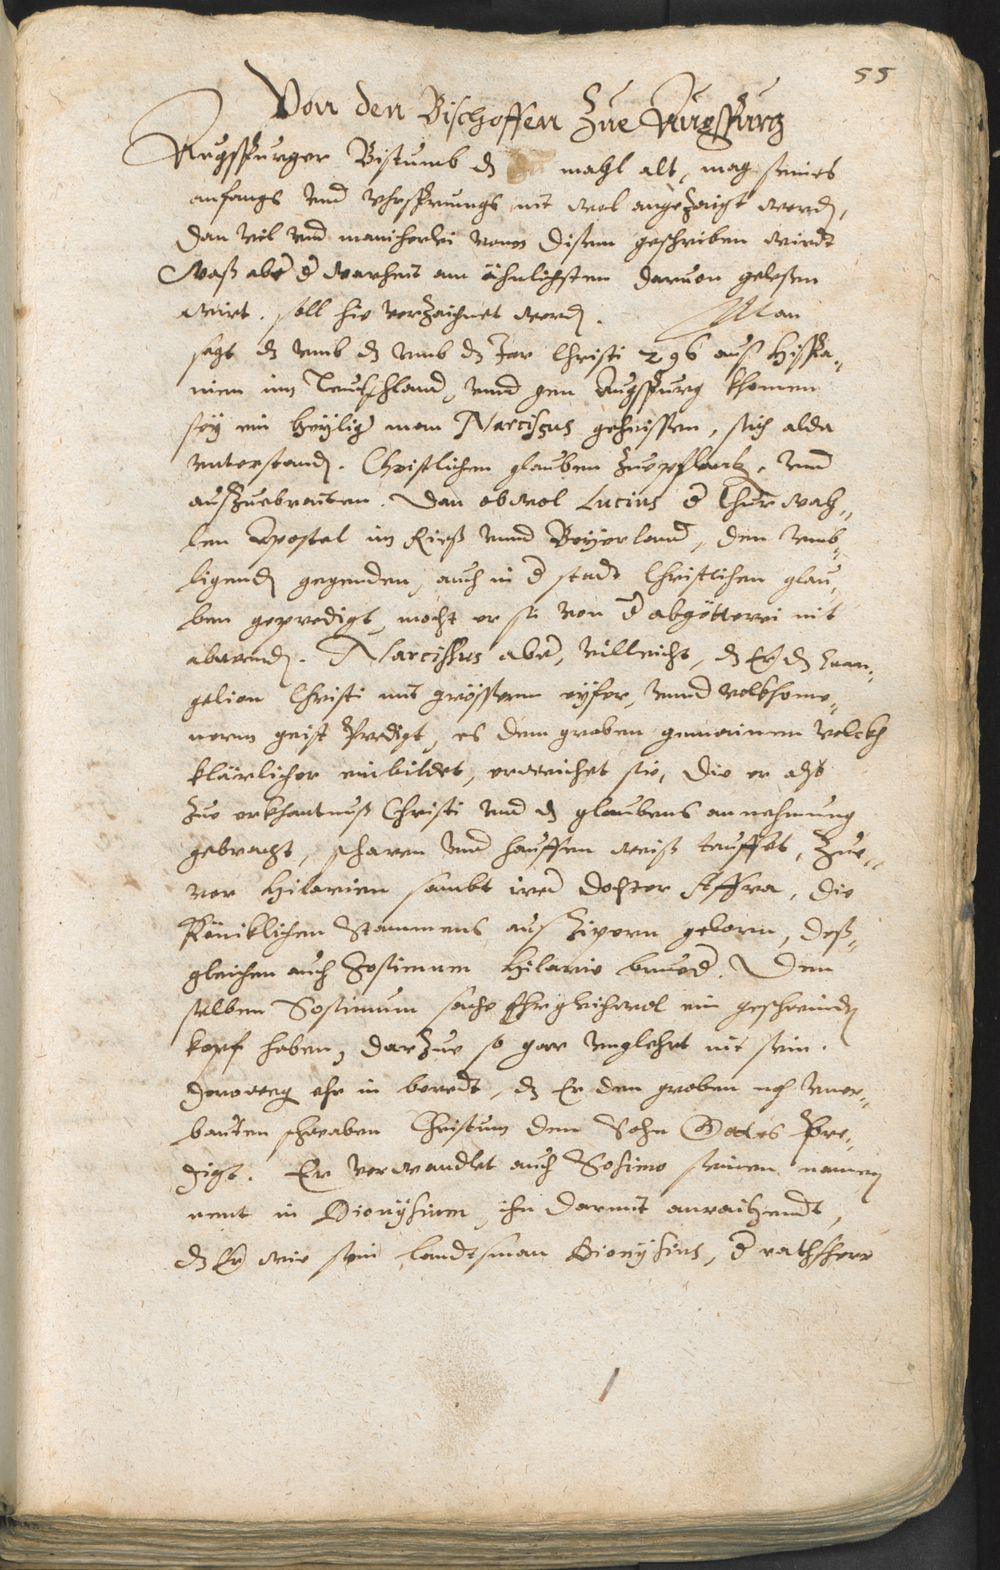 55
Von den Bischoffen Zue Augspurg
Augspurger Bistumb dz mahl alt, mag seines
anfangs vnd vhrsprungs nit wol angezaigt werden,
dan vil vnd mancherlei vonn disem geschriben wirdt
Waß aber d warheit am ähnlichsten daruon geleßen
wirt. soll hie verzaichnet werden. Man
sagt dz vmb dz vmb dz Jar Christi 296 auß Hispa„
nien inn Teutschland, vnnd gen Augspurg khomen
sey ein heylig man Narcissus geheissen, sich alda
vnterstanden. Christlichen glauben Zuepflantzen, vnd
außzuebraiten. Dan obwol Lucius d Churwalh„
len Apostel im Rieß vnnd Beyerland, den vmb„
ligenden gegenden, auch in d stadt Christlichen glau„
ben geprediget, mocht er sie von d abgötterei nit
abwenden. Narcissus aber, villeicht, dz Er dz Euan„
gelion Christi mit grösserem eyfer, vnnd volkhome„
nerm geist Predigt, es dem groben gemainen volckh
klärlicher einbildet, erweichet sie, die er alß
Zue erkhantnuß Christi vnd dz glaubens annehmung
gebracht, scharen vnd hauffen weiß tauffet, Zue„
vor Hilarien sambt irer dochter Affra, die
Königklichen Stammens auß Zipern geborn, deß„
gleichen auch Zosimum Hilarie bruoder. Dem
selben Sosimum sache Ehr gleichwol ein geschwinden
kopf haben, darzue so gar vnglehrt nit sein.
Derowegen ehr in beredt, dz Er den groben noch vner„
bauten schwaben Christum den Sohn Gottes Pre„
digt. Er verwandlet auch Sosimo seinen namen
nent in Dionysium, ihn darmit anraitzendt,
dz Er wie sein landtsman Dionysius, d rathsherr